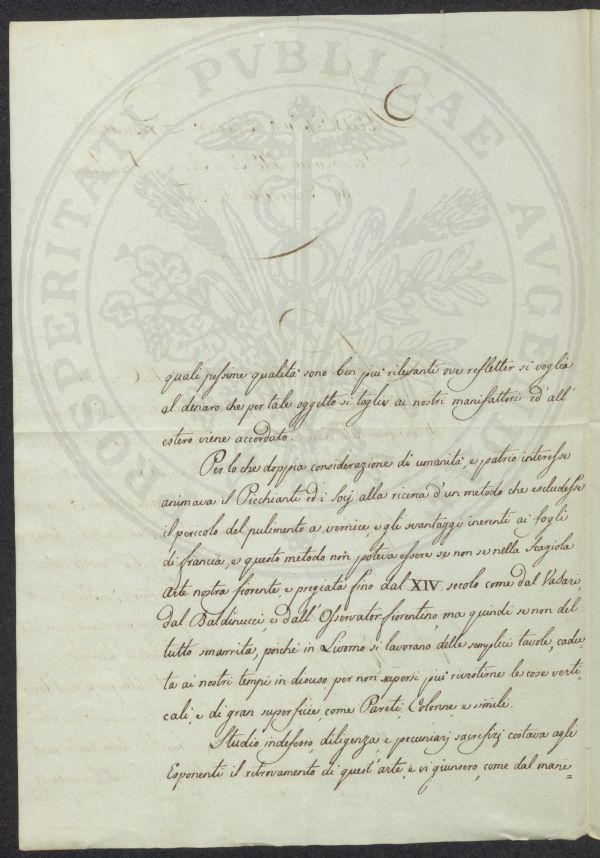 PROSPERITATI PVBLICAE AVGENDAE
quali pessime qualità sono ben più rilevanti ove refletter si voglia
al denaro che per tale oggetto si toglie ai nostri manifattori ed all'
estero viene accordato.
Per lo che doppia considerazione di umanità, e patrio interesse
animava il Picchianti ed i Socj alla ricerca d'un metodo che escludesse
il pericolo del pulimento a vernice, e gli svantaggi inerenti ai fogli
di francia, e questo metodo non poteva essere se non se nella Scagiola
Arte nostra fiorente, e pregiata fino dal XIV. secolo come dal Vasari,
dal Baldinucci, e dall'Osservator fiorentino ma quindi se non del
tutto smarrita, poichè in Livorno si lavorano delle semplici tavole, cadu=
ta ai nostri tempi in disuso per non sapersi più rivestirne le cose verti=
cali, e di gran superficie, come Pareti, Colonne, e simili.
Studio indefesso, diligenza, e pecuniarj sacrifizj costava agli
Esponenti il ritrovamento di quest'arte, e vi giunsero, come dal mani=